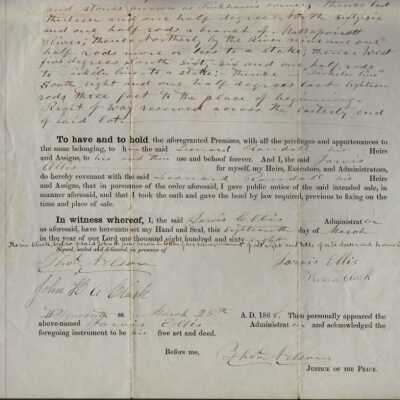 and stones known as Faunham's corner; thence East
thirteen and one half degrees North sixty six
and one half rods a branch of Mattapoisett
River; thence Northerly the River seventeen and one
half rods more or less to a stake; thence West
five degrees South sixty six and one half rods
to line to a stake; thence in line
South eight and one half degrees East eighteen
rods three feet to the place of beginning
Right of way reserved across the easterly end
of said lot.
To have and to hold the aforegranted Premises, with all the privileges and appurtenances to
the same belonging, to him the said Randall his Heirs
and Assigns, to his and their use and behoof forever. And I, the said Jarvis
Ellis for myself, my Heirs, Executors, and Administrators,
do hereby covenant with the said Randall his Heirs
and Assigns, that in pursuance of the order aforesaid, I gave public notice of the said intended sale, in
manner aforesaid, and that I took the oath and gave the bond by law required, previous to fixing on the
time and place of sale.
In witness whereof, I, the said Jarvis Ellis Administrator
as aforesaid, have hereunto set my Hand and Seal, this eighteenth day of March
in the year of our Lord one thousand eight hundred and sixty eight
Signed, sealed and delivered, in presence of
Jarvis Ellis
Thos. Nelson
Clark
John H. Clark
Plymouth ss. March 25th A. D. 1868. Then personally appeared the
above-named Jarvis Ellis Administrator and acknowledged the
foregoing instrument to be his free act and deed.
Before me, Thos. Nelson
JUSTICE OF THE PEACE.